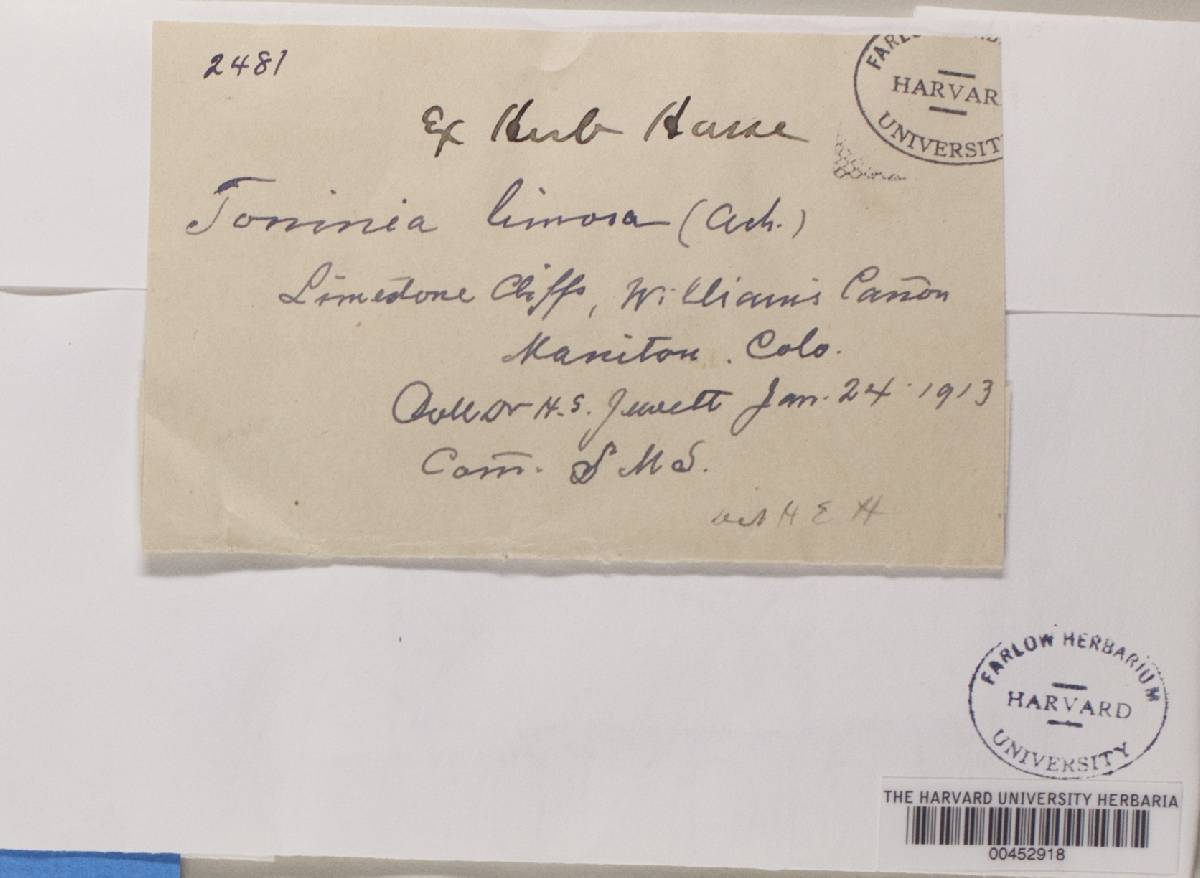 2481
FARL
HARVAR
UNIVERSIT
Ex Herb Hasse
Toninia limosa (Ach.)
Limestone Cliffs, Williams Cañon
Maniton. Colo.
Coll Dr H.S. Jewett Jan. 24 1913
Com̄. S M S.
det H E H
FARLOW HERBARIUM
HARVARD
UNIVERSITY
THE HARVARD UNIVERSITY HERBARIA
00452918